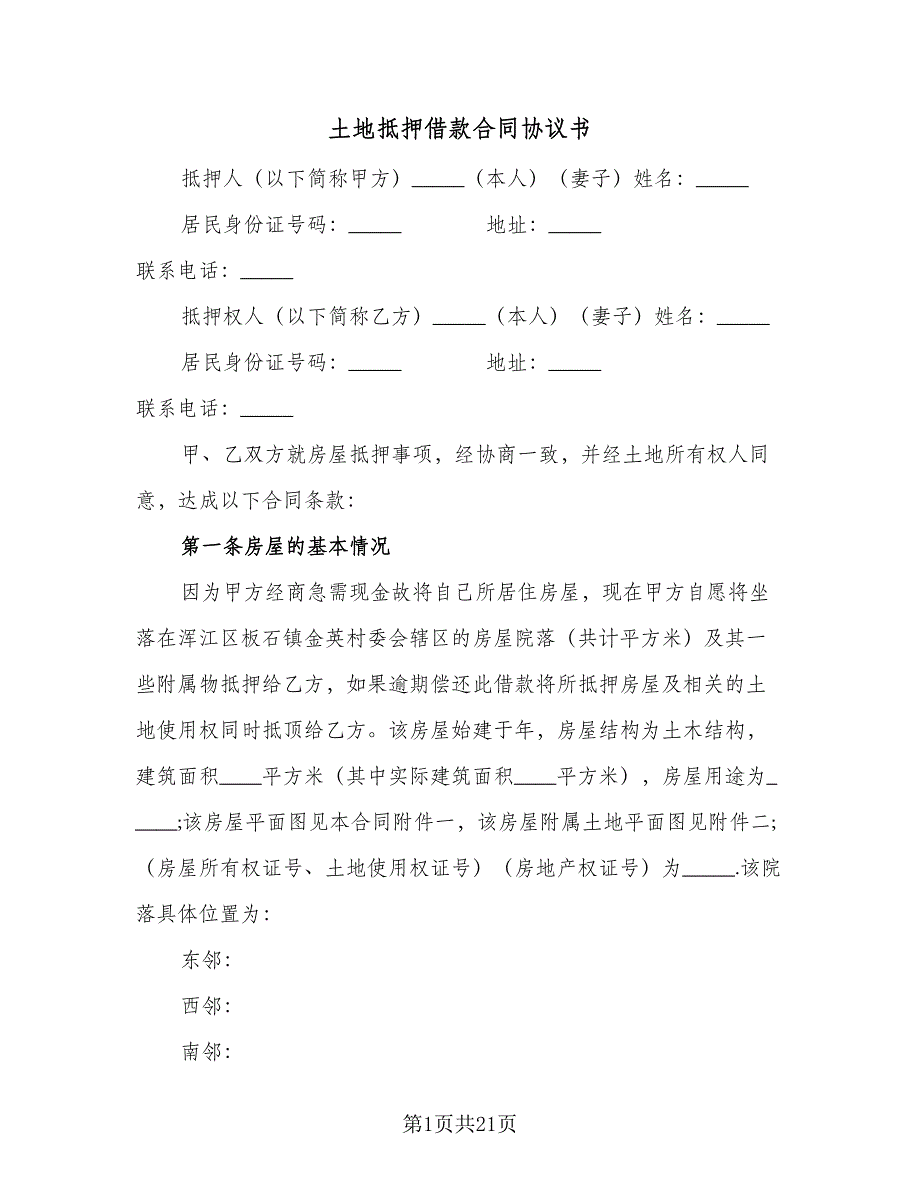 土地抵押借款合同协议书
抵押人（以下简称甲方）_____（本人）（妻子）姓名：_____
居民身份证号码：_____ 地址：_____
联系电话：_____
抵押权人（以下简称乙方）_____（本人）（妻子）姓名：_____
居民身份证号码：_____ 地址：_____
联系电话：_____
甲、乙双方就房屋抵押事项，经协商一致，并经土地所有权人同
意，达成以下合同条款：
第一条房屋的基本情况
因为甲方经商急需现金故将自己所居住房屋，现在甲方自愿将坐
落在浑江区板石镇金英村委会辖区的房屋院落（共计平方米）及其一
些附属物抵押给乙方，如果逾期偿还此借款将所抵押房屋及相关的土
地使用权同时抵顶给乙方。该房屋始建于年，房屋结构为土木结构，
建筑面积____平方米（其中实际建筑面积____平方米），房屋用途为_
____;该房屋平面图见本合同附件一，该房屋附属土地平面图见附件二;
（房屋所有权证号、土地使用权证号）（房地产权证号）为_____.该院
落具体位置为：
东邻：
西邻：
南邻：
第1页共21页